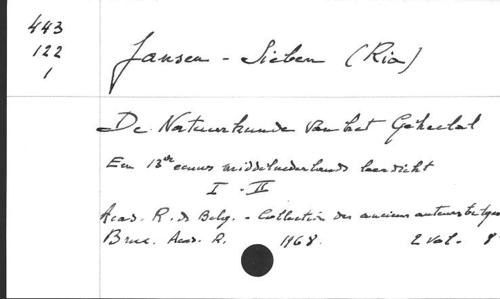 443
122
1
Jansen - Sieben (Ria)
De Natuurkunde van het Geheelal
Een 13de eeuws middelnederlands leerdicht
I - II
Acad. R. de Belg. - Collection des anciens auteurs belges
Brux. Acad. R. 1968. 2 vol. 8